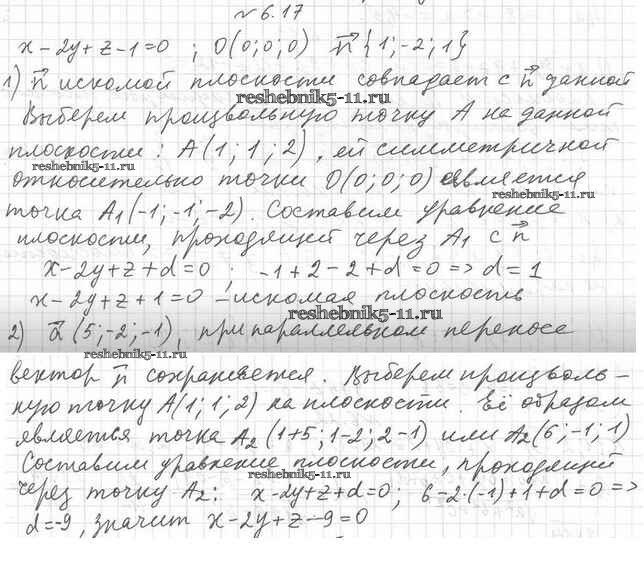 № 6.17
x − 2y + z − 1 = 0 ; O(0; 0; 0) n⃗ {1; −2; 1}
1) n⃗ искомой плоскости совпадает с n⃗ данной
reshebnik5-11.ru
Выберем произвольную точку A на данной
плоскости: A(1; 1; 2), ей симметричной
reshebnik5-11.ru
относительно точки O(0; 0; 0) является
reshebnik5-11.ru
точка A₁(−1; −1; −2). Составим уравнение
плоскости, проходящей через A₁ с n⃗
x − 2y + z + d = 0 ; −1 + 2 − 2 + d = 0 => d = 1
x − 2y + z + 1 = 0 – искомая плоскость
reshebnik5-11.ru
2) a⃗ (5; −2; −1), при параллельном переносе
reshebnik5-11.ru
вектор n⃗ сохраняется. Выберем произволь–
ную точку A(1; 1; 2) на плоскости. Её образом
является точка A₂ (1+5; 1−2; 2−1) или A₂(6; −1; 1)
Составим уравнение плоскости, проходящей
reshebnik5-11.ru
через точку A₂: x − 2y + z + d = 0; 6 − 2·(−1) + 1 + d = 0 =>
d = −9, значит x − 2y + z − 9 = 0